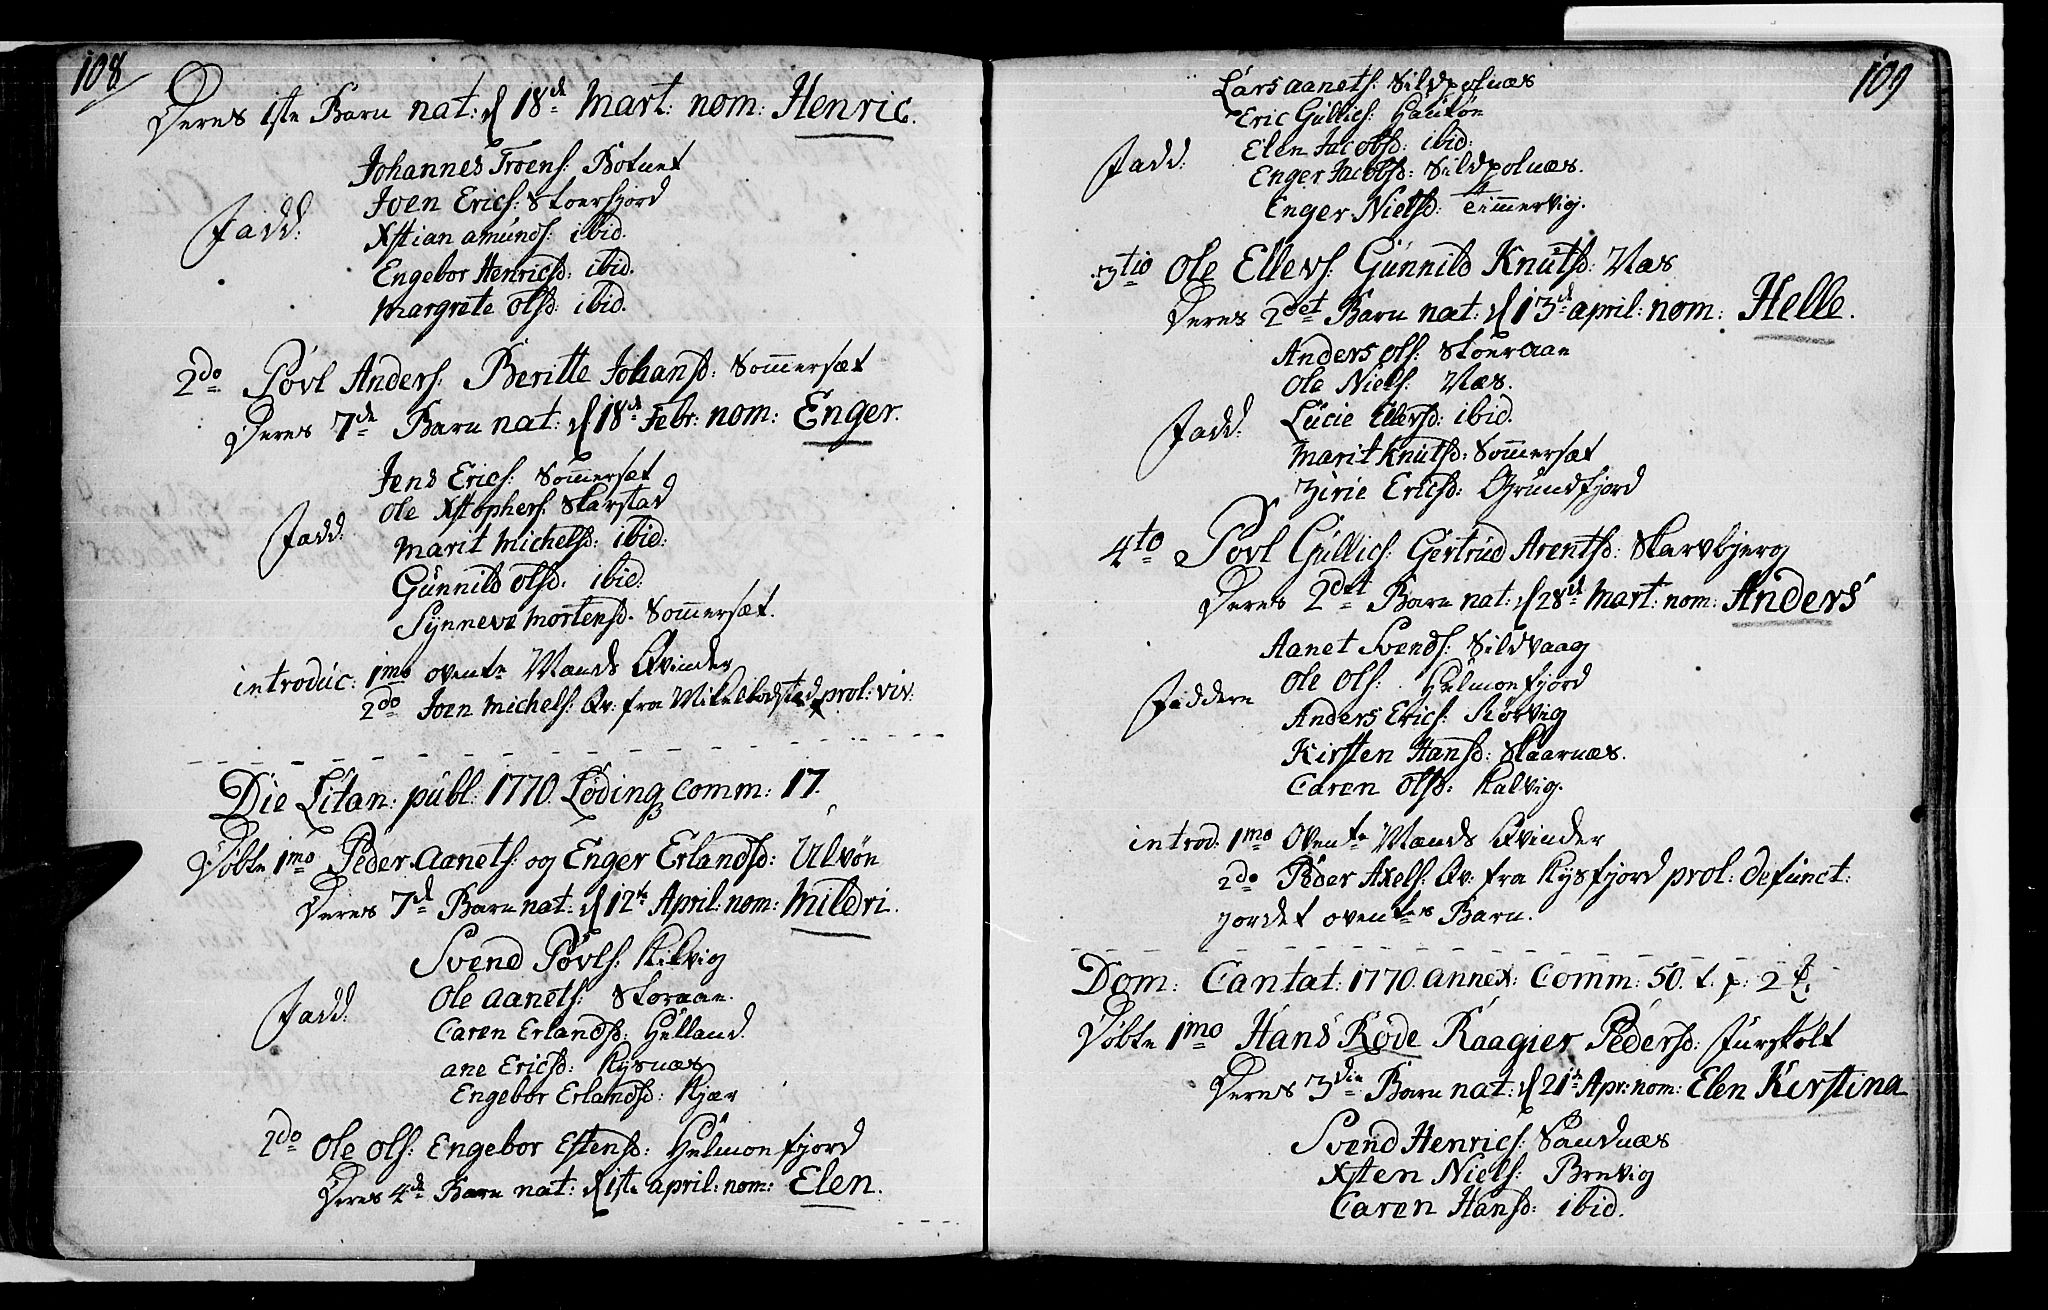 108
Deres 1ste Barn nat: d 18d Mart: nom: Henric.
Johannes Troens: Botnet
Joen Erics: Stoersfjord
Xstian amunds: ibid.
Fadd:
Engebor Henricsd: ibid.
Margrete Olsd: ibid.
2do Povl Anders: Beritte Johansd: Sommersæt
Deres 7d Barn nat: d 18d Febr: nom: Enger.
Jens Erics: Sommersæt
Ole Xstophers: Skarstad
Fadd:
Marit Michelsd: ibid:
Gunnild Olsd. ibid:
Synneve Mortensd. Sommersæt.
introduc: 1mo ovente Mands Qvinde
2do Joen Michels: Qv: fra Mikelbodsted prol: viv:
Die Litan: publ: 1770 Løding comm: 17.
Døbte 1mo Peder Aanets: og Enger Erlandsd: Ulvøn
Deres 7d Barn nat: d 12te April: nom: Mildri.
Svend Povls: Kilvig
Ole Aanets: Storaae.
Fadd:
Caren Erlandsd: Helland.
ane Ericsd: Rysnæs
Engebor Erlandsd: Kjær
2do Ole Ols: Engebor Estensd: Helmonfjord
Deres 4de Barn nat: d 1ste april: nom: Elen.
109
Lars Aanets: Sildpolnæs
Eric Gullics: Hauköe
Fadd:
Elen Jacobsd: ibid:
Enger Jacobsd: Sildpolnæs.
Enger Nielsd: Timmervig.
3tio Ole Ellevs: Gunnild Knutsd: Næs
Deres 2det Barn nat: d 13d april: nom: Helle.
Anders Ols: Stoeraae
Ole Niels: Næs.
Fadd:
Lucie Ellevsd: ibid.
Marit Knutsd: Sommersæt
Zirie Ericsd: Grundfjord
4to Povl Gullics: Gertrud Arentsd: Skarvbjerg
Deres 2det Barn nat: d 28d Mart: nom: Anders
Aanet Svends: Sildvaag
Ole Ols: Helmonfjord
Faddere
Anders Erics: Korvig
Kirsten Hansd: Skaarnæs.
Caren Olsd: Kalvig.
introd: 1mo Ovente Mands Qvinder
2do Peder Axels: Qv: fra Kysfjord prol: defunct:
jordet oventes Barn.
Dom: Cantat: 1770 annex: Comm: 50. t. p: 2
Døbte 1mo Hans Rode Raagier Pedersd: Furskolt
Deres 3die Barn nat: d 21de Apr: nom: Elen Kirstina
Svend Henrics: Sandnæs
Xsten Niels: Brevig
Caren Hansd: ibid.